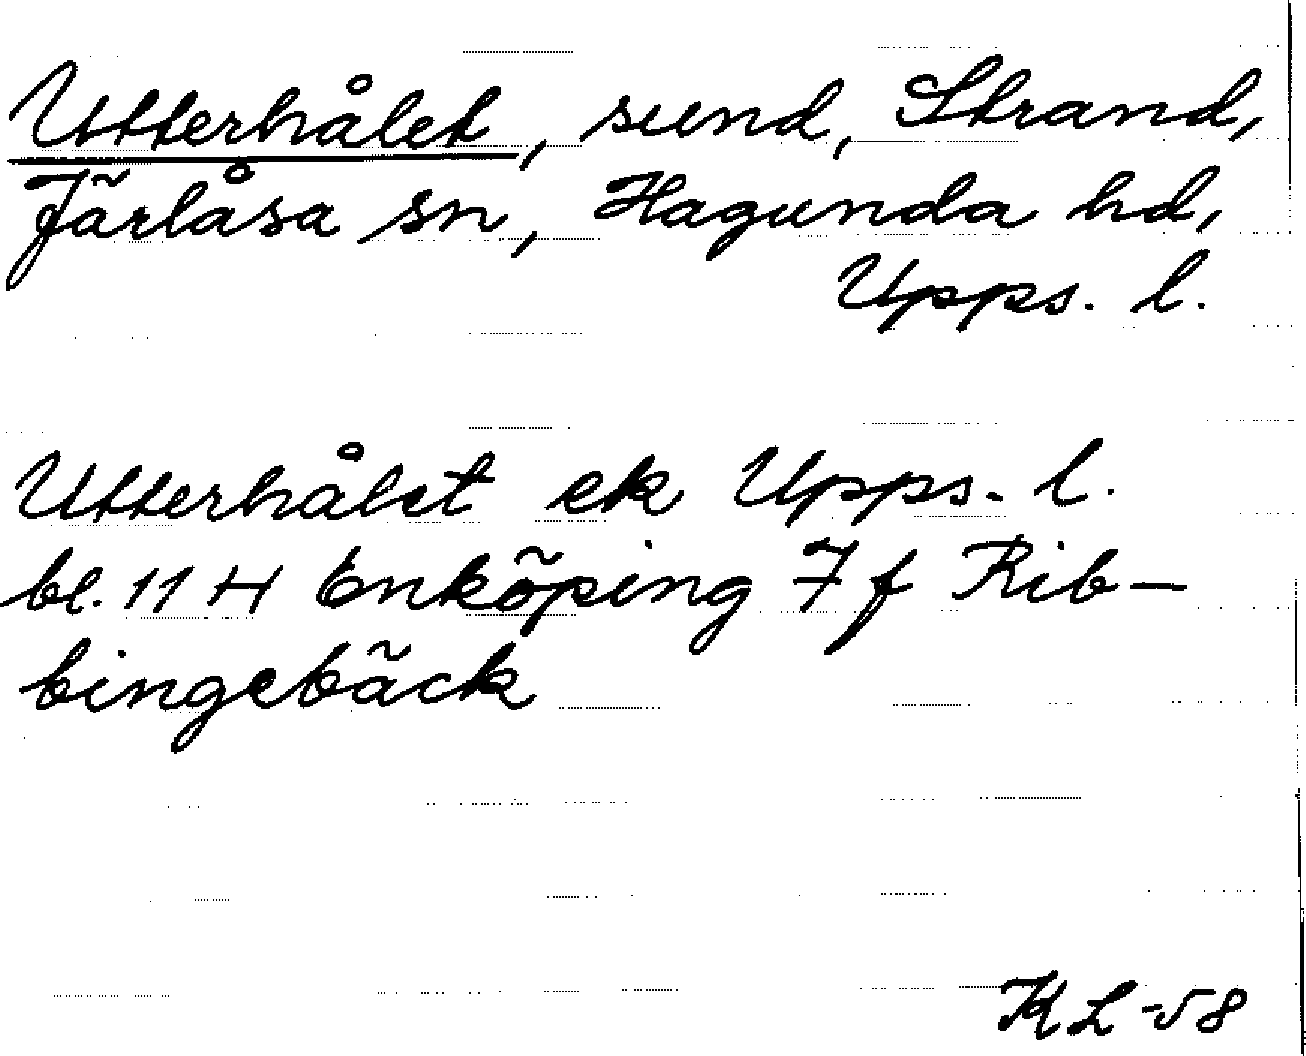 Utterhålet, sund, Strand,
Järlåsa sn, Hagunda hd,
Upps. l.
Utterhålet ek Upps. l.
bl. 11 H Enköping 7 f Rib-
bingebäck
KL-58